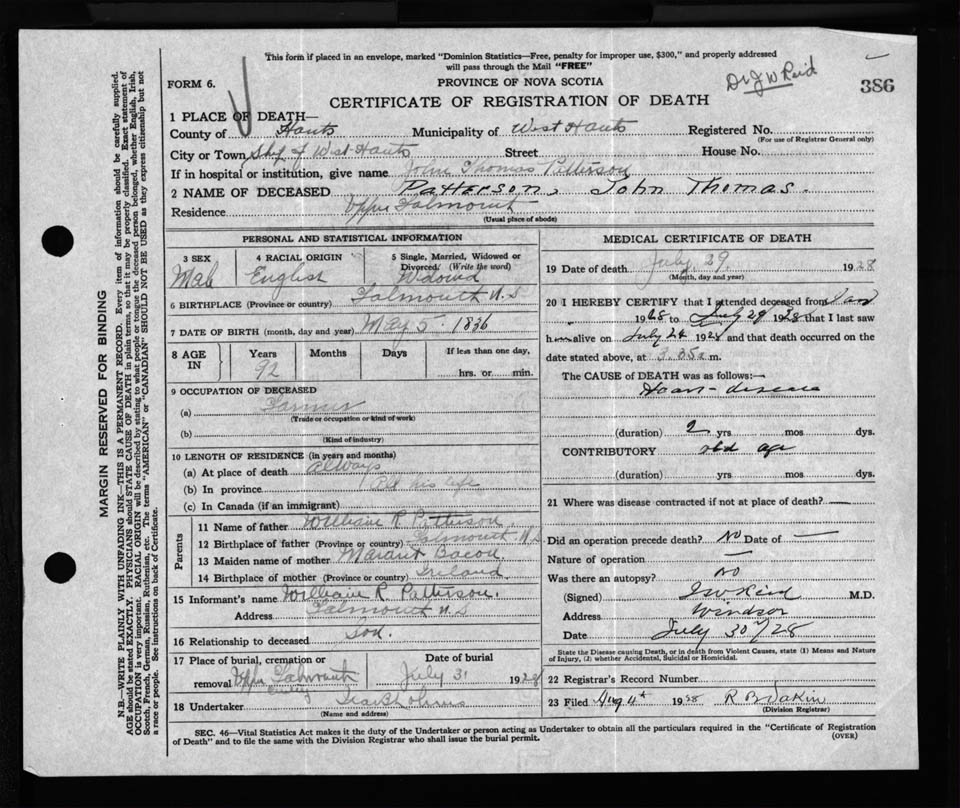 This form if placed in an envelope, marked "Dominion Statistics—Free, penalty for improper use, $300," and properly addressed
will pass through the Mail "FREE"
Dr J W Reid
386
FORM 6.
PROVINCE OF NOVA SCOTIA
CERTIFICATE OF REGISTRATION OF DEATH
1 PLACE OF DEATH—
County of Hants Municipality of West Hants Registered No.
(For use of Registrar General only)
City or Town of West Hants Street House No.
If in hospital or institution, give name John Thomas Patterson
2 NAME OF DECEASED Patterson, John Thomas.
Residence Upper Falmouth
(Usual place of abode)
PERSONAL AND STATISTICAL INFORMATION
3 SEX 4 RACIAL ORIGIN 5 Single, Married, Widowed or Divorced. (Write the word)
Male English Widowed
6 BIRTHPLACE (Province or country) Falmouth N.S
7 DATE OF BIRTH (month, day and year) May 5 1836
8 AGE IN Years Months Days If less than one day,
92 hrs. or min.
9 OCCUPATION OF DECEASED
(a) Farmer
(Trade or occupation or kind of work)
(b)
(Kind of industry)
10 LENGTH OF RESIDENCE (in years and months)
(a) At place of death always
(b) In province All his life
(c) In Canada (if an immigrant)
Parents
11 Name of father William R. Patterson
12 Birthplace of father (Province or country) Falmouth N.S
13 Maiden name of mother Bacon
14 Birthplace of mother (Province or country) Ireland
15 Informant's name William R Patterson.
Address Falmouth N.S
16 Relationship to deceased Son.
17 Place of burial, cremation or Date of burial
removal Upper Falmouth July 31 1928
18 Undertaker
(Name and address)
MEDICAL CERTIFICATE OF DEATH
19 Date of death July 29 1928
(Month, day and year)
20 I HEREBY CERTIFY that I attended deceased from Jan
19 to July 29 1928 that I last saw
him alive on July 1928 and that death occurred on the
date stated above, at m.
The CAUSE of DEATH was as follows:—
Heart disease
(duration) 2 yrs mos dys.
CONTRIBUTORY old age
(duration) yrs mos dys.
21 Where was disease contracted if not at place of death? —
Did an operation precede death? No Date of —
Nature of operation —
Was there an autopsy? no
(Signed) J W Reid M.D.
Address Windsor
Date July 30/28
State the Disease causing Death, or in death from Violent Causes, state (1) Means and Nature
of Injury, (2) whether Accidental, Suicidal or Homicidal.
22 Registrar's Record Number
23 Filed Aug 4th 1928
(Division Registrar)
SEC. 46—Vital Statistics Act makes it the duty of the Undertaker or person acting as Undertaker to obtain all the particulars required in the "Certificate of Registration
of Death" and to file the same with the Division Registrar who shall issue the burial permit.
(OVER)
MARGIN RESERVED FOR BINDING
N.B.—WRITE PLAINLY WITH UNFADING INK—THIS IS A PERMANENT RECORD. Every item of information should be carefully supplied.
AGE should be stated EXACTLY. PHYSICIANS should STATE CAUSE OF DEATH in plain terms, so that it may be properly classified. Exact statement of
OCCUPATION is very important. RACIAL ORIGIN will be described by stating to what people or tongue the deceased person belonged, whether English, Irish,
Scotch, French, German, Russian, Ruthenian, etc. The terms "AMERICAN" or "CANADIAN" SHOULD NOT BE USED as they express citizenship but not
a race or people. See instructions on back of Certificate.